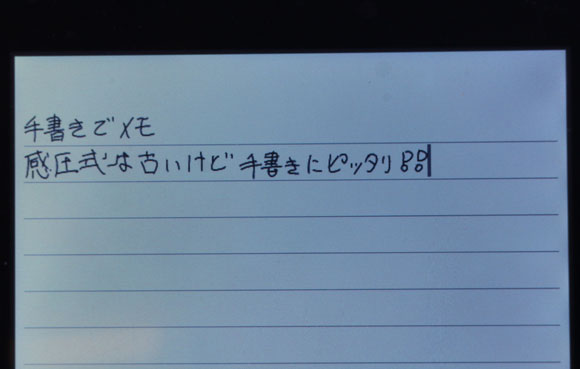 手書きでメモ
感圧式は古いけど手書きにピッタリ!!